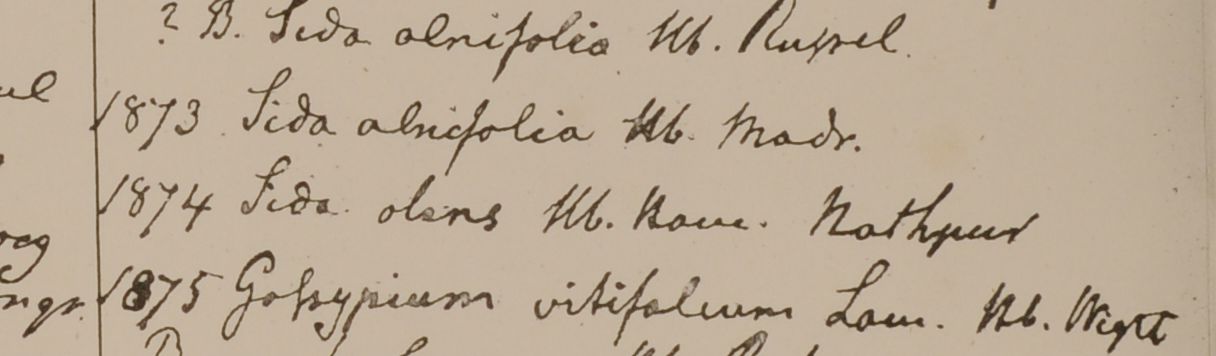 ? B. Sida alnifolia Hb. Russel.
1873 Sida alnifolia Hb. Madr.
1874 Sida olens Hb. Ham. Nathpur
1875 Gossypium vitifolium Lam. Hb. Wight